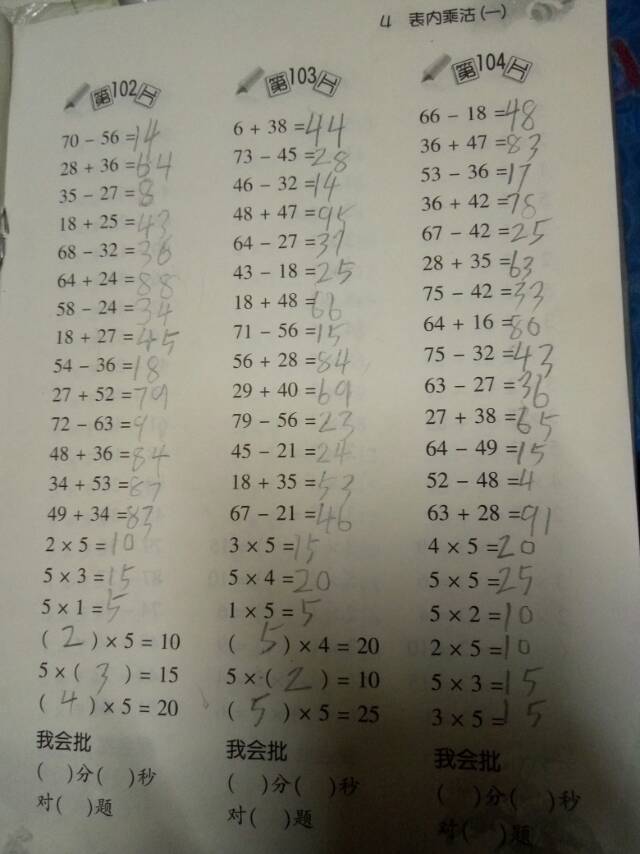 4 表内乘法(一)
第102天
70 - 56 =14
28 + 36 =64
35 - 27 =8
18 + 25 =43
68 - 32 =36
64 + 24 =88
58 - 24 =34
18 + 27 =45
54 - 36 =18
27 + 52 =79
72 - 63 =9
48 + 36 =84
34 + 53 =87
49 + 34 =83
2 × 5 =10
5 × 3 =15
5 × 1 =5
( 2 ) × 5 = 10
5 × ( 3 ) = 15
( 4 ) × 5 = 20
我会批
( )分( )秒
对( )题
第103天
6 + 38 =44
73 - 45 =28
46 - 32 =14
48 + 47 =95
64 - 27 =37
43 - 18 =25
18 + 48 =66
71 - 56 =15
56 + 28 =84
29 + 40 =69
79 - 56 =23
45 - 21 =24
18 + 35 =53
67 - 21 =46
3 × 5 =15
5 × 4 =20
1 × 5 =5
( 5 ) × 4 = 20
5 × ( 2 ) = 10
( 5 ) × 5 = 25
我会批
( )分( )秒
对( )题
第104天
66 - 18 =48
36 + 47 =83
53 - 36 =17
36 + 42 =78
67 - 42 =25
28 + 35 =63
75 - 42 =33
64 + 16 =80
75 - 32 =43
63 - 27 =36
27 + 38 =65
64 - 49 =15
52 - 48 =4
63 + 28 =91
4 × 5 =20
5 × 5 =25
5 × 2 =10
2 × 5 =10
5 × 3 =15
3 × 5 =15
我会批
( )分( )秒
对( )题